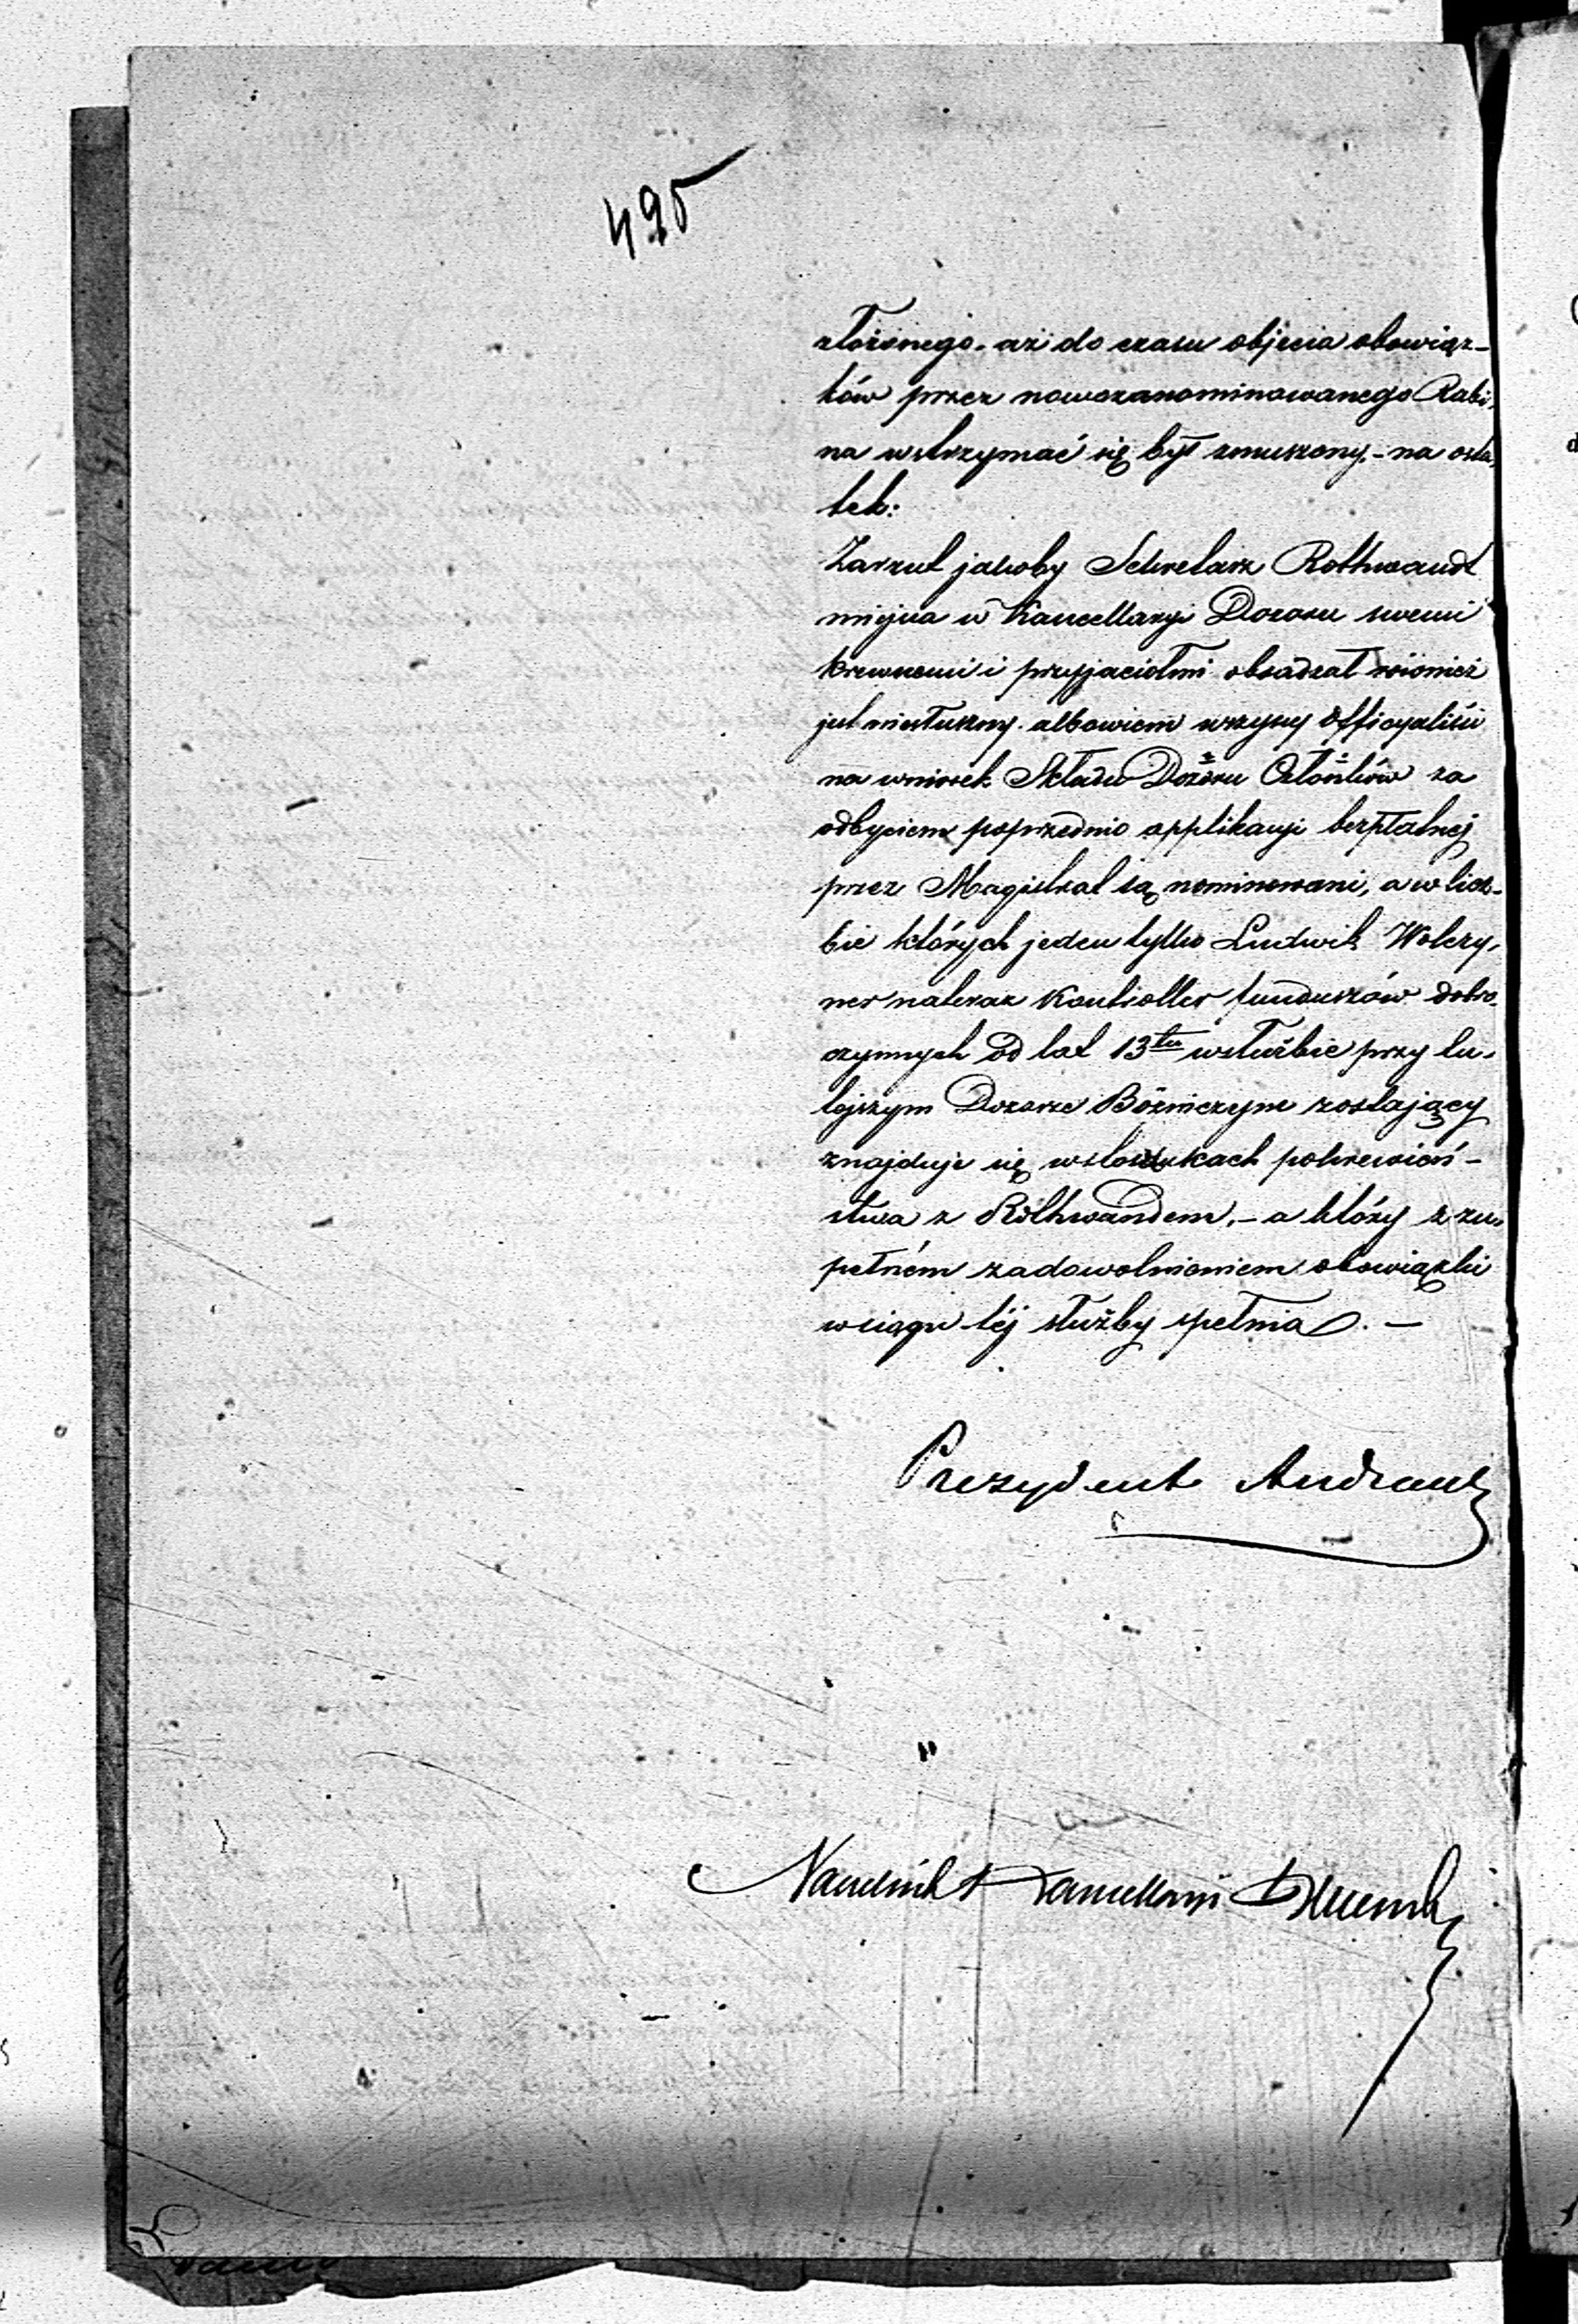 495
złożonego. aż do czasu objęcia obowiąz-
ków przez nowozanominowanego Rabi,
na wstrzymać się był zmuszony,- na osta,
tek:
Zarzut jakoby Sekretarz Rothwandt
miejsca w Kancellaryi Dozoru swemi
krewnemi i przyjaciołmi obsadzał również
jest niesłuszny. albowiem wszyscy Officyaliści
na wniosek Składu Dozoru Członków za
odbyciem poprzednio applikacyi bezpłatnej
przez Magistrat są nominowani, a w licz-
bie których jeden tylko Ludwik Wolczy,
ner nateraz Kontroller funduszów dobro-
czynnych od lat 13tu w służbie przy tu,
tejszym Dozorze Bóżniczym zostający
znajduje się w stosunkach pokrewień-
stwa z Rothwandem,- a który z zu,
pełném zadowolnieniem obowiązki
w ciągu téj służby spełnia. -
Prezydent Andrault
Naczelnik Kancellaryi